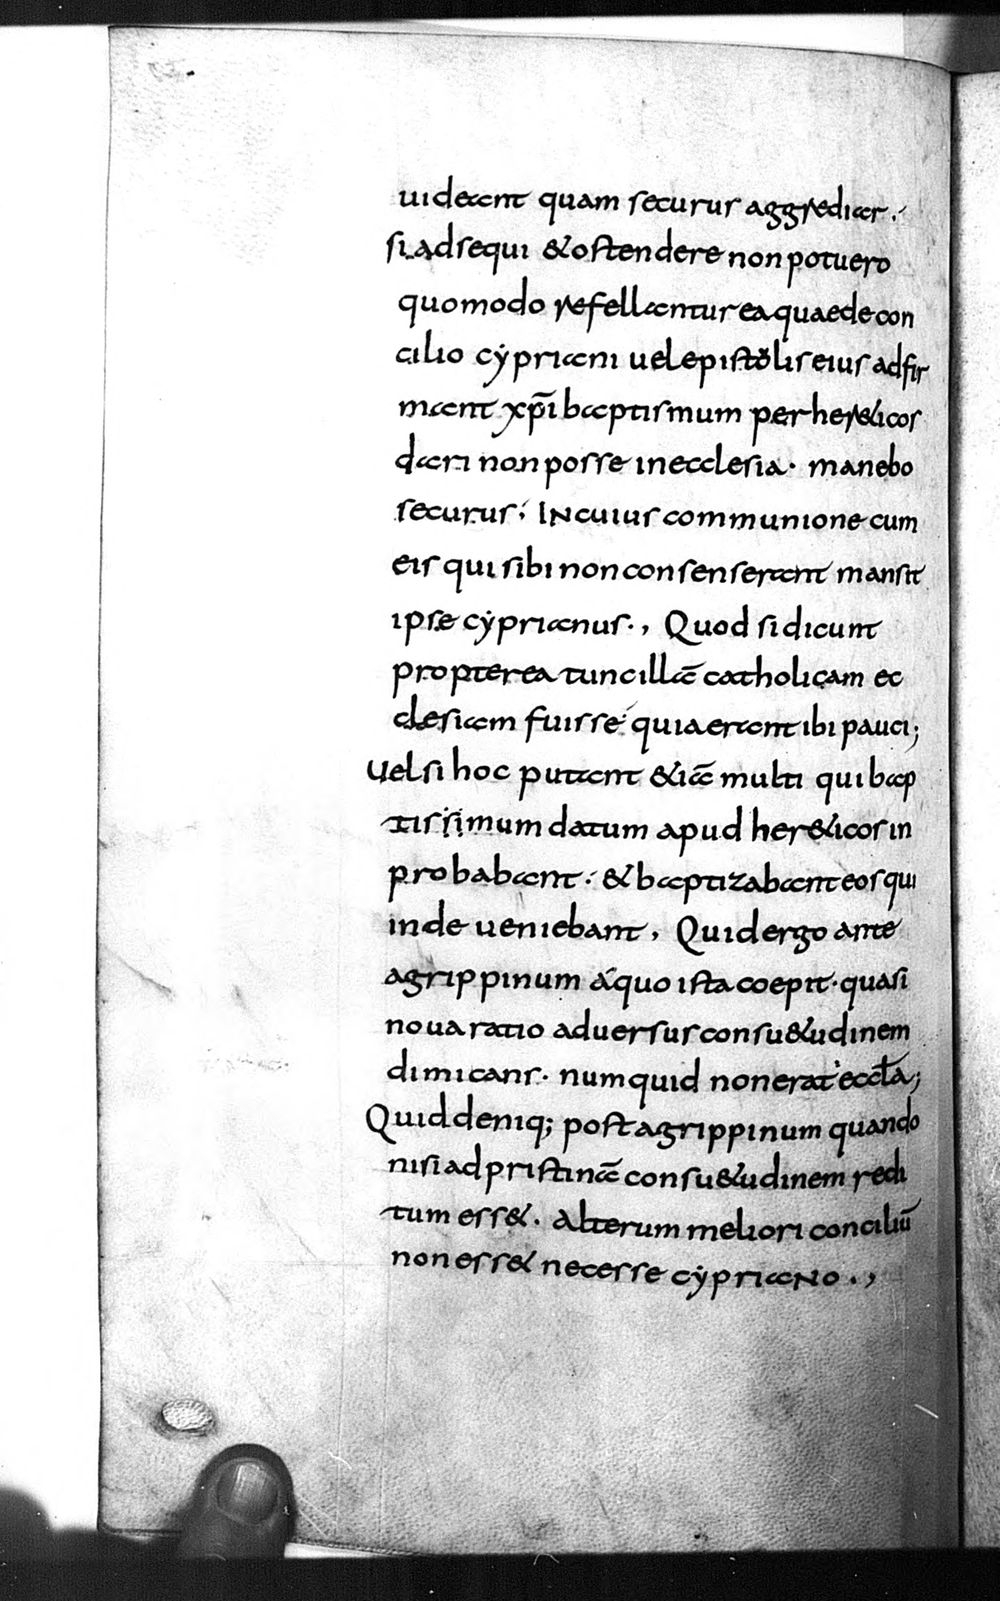 uideant quam securus aggrediar.
si adsequi & ostendere non potuero
quomodo refellantur ea quae de con
cilio cẏpriani uel epistolis eius adfir
mant xp̅i baptismum per her&icos
dari non posse in ecclesia · manebo
securus; IN cuius communione cum
eis qui sibi non consenserant mansit
ipse cẏprianus ., Quod si dicunt
propterea tunc illā catholicam ec
clesiam fuisse quia erant ibi pauci;
Uel si hoc putant &iā multi qui bap
tissimum datum apud her&icos in
probabant : & baptizabant eos qui
inde ueniebant , Quid ergo ante
agrippinum á quo ista coepit · quasi
noua ratio aduersus consu&udinem
dimicans · numquid non erat eccl̅a;
Quid deniq; post agrippinum quando
nisi ad pristinā consu&udinem redi
tum ess& . Alterum meliori conciliū
non ess& necesse cẏpriaNo .,